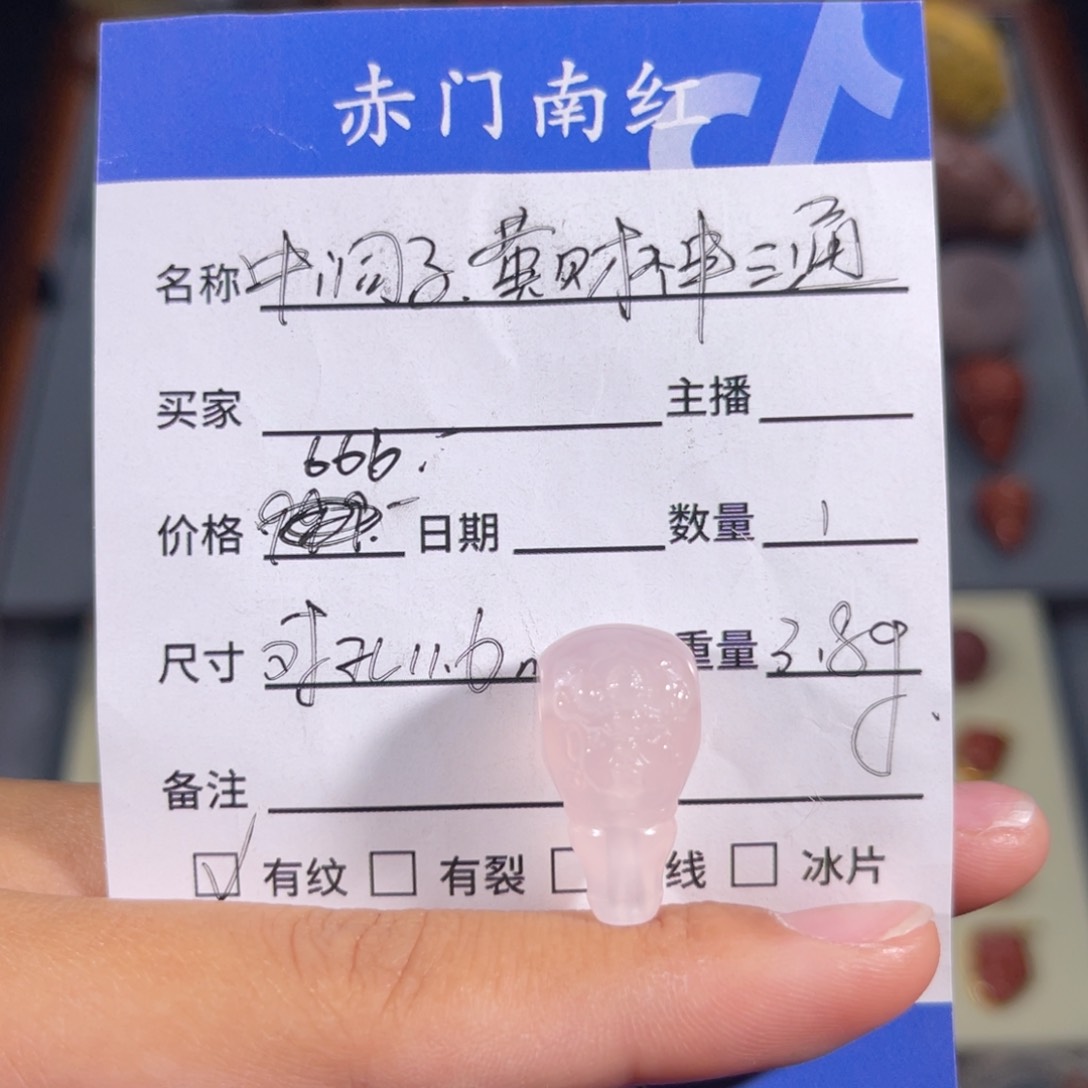 赤门南红
名称 中润子.黄财神三通
买家 主播
666.
价格 日期 数量 1
尺寸 对孔11.6 重量 3.8g
备注
有纹 有裂 线 冰片